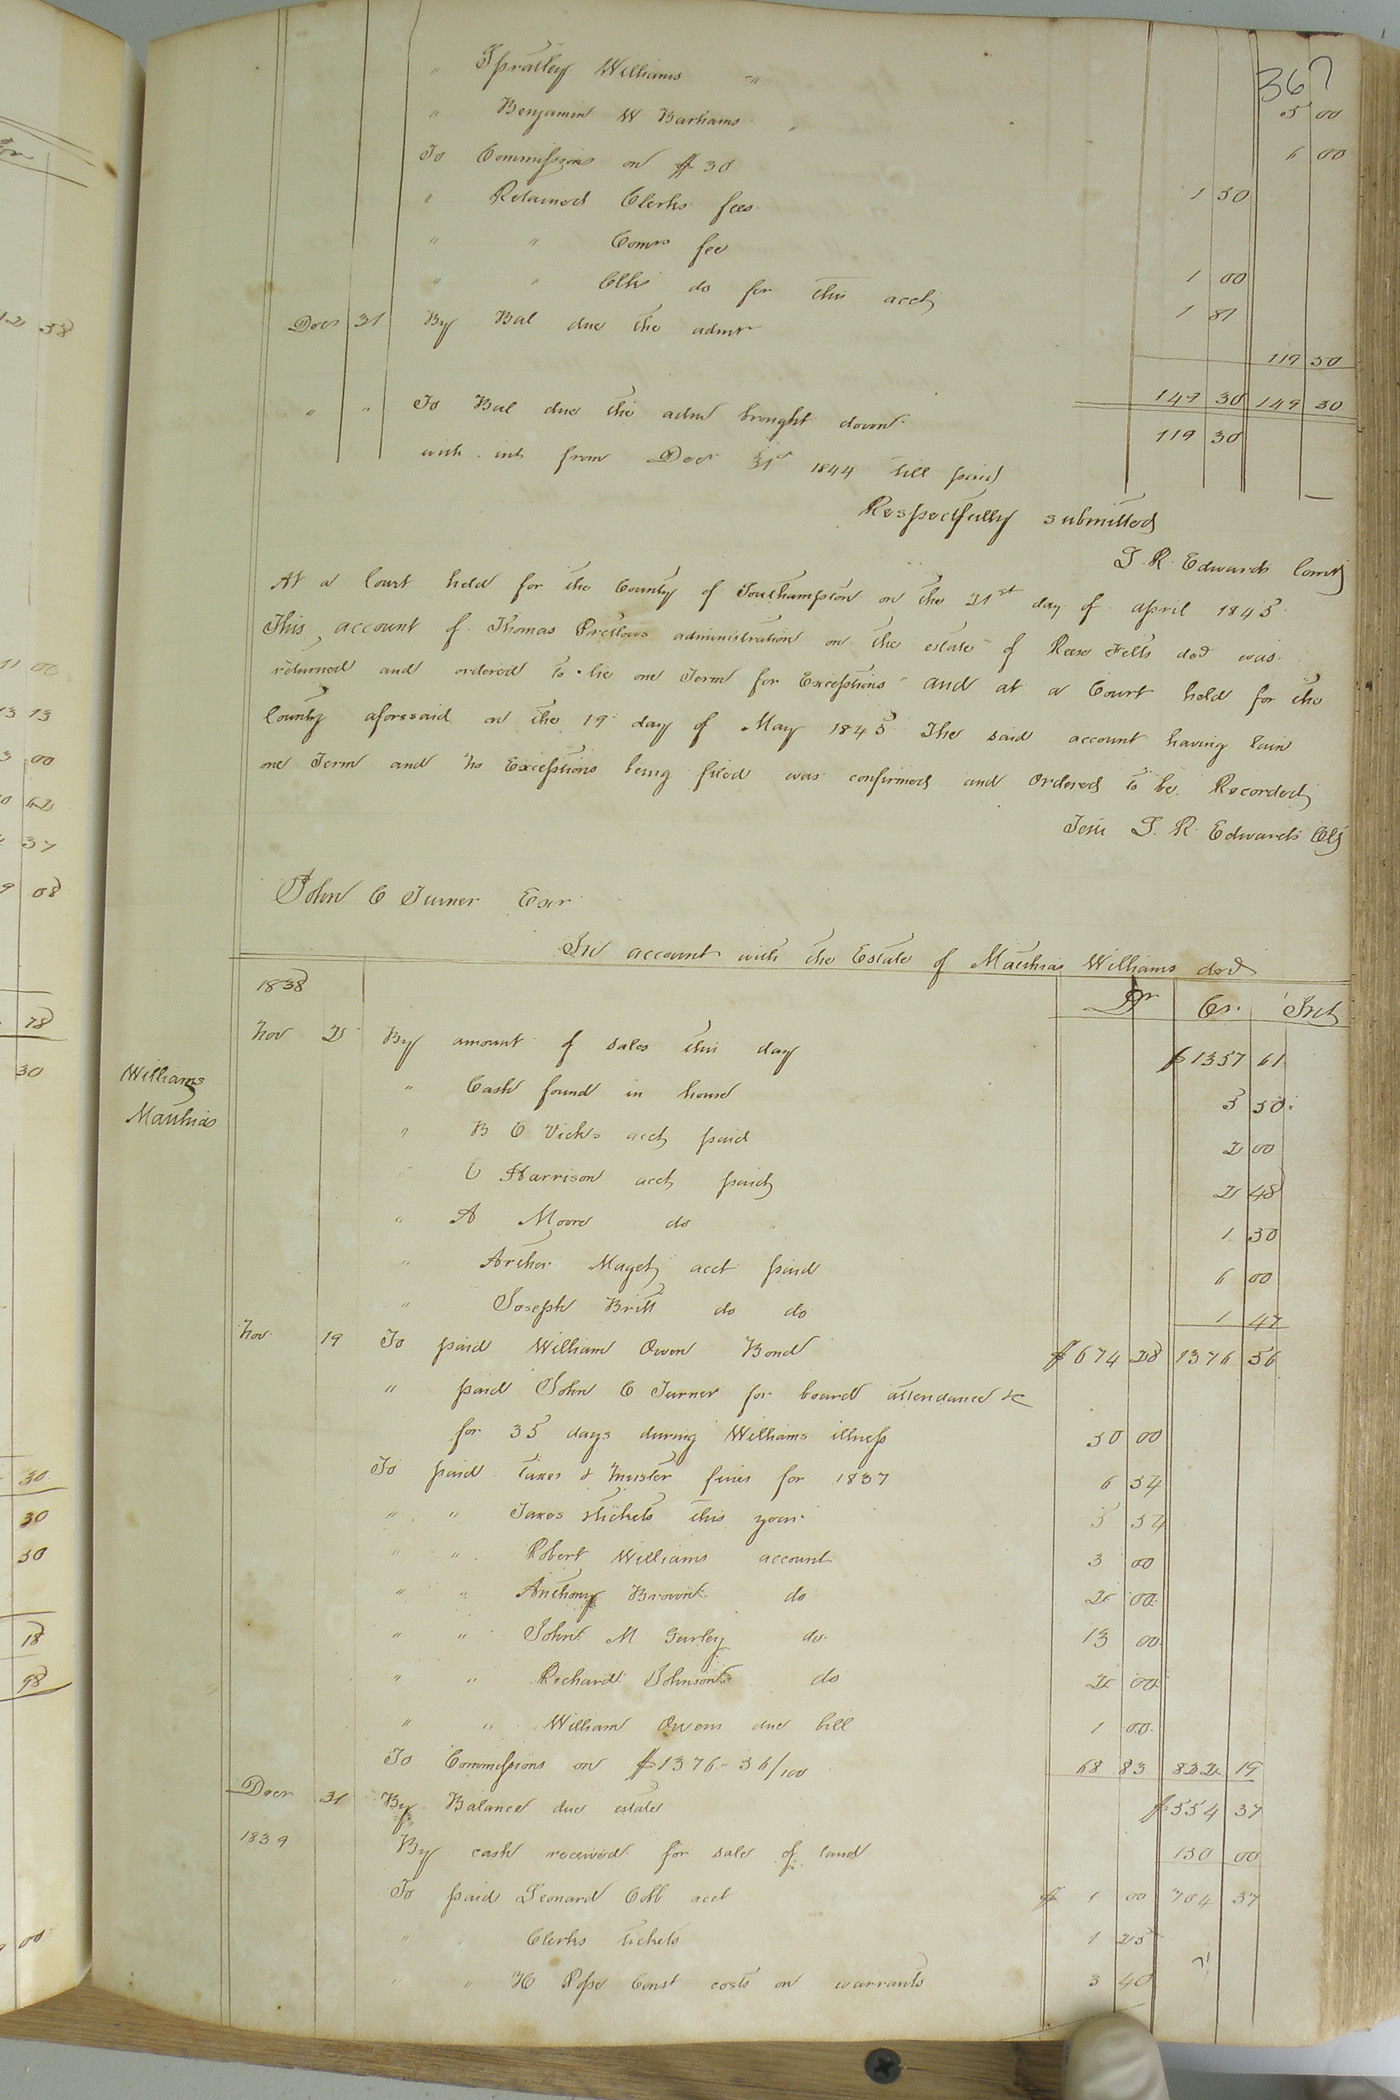 367
" Spratley Williams " 5 00
" Benjamin W Barhams " 6 00
To Commissions on $30 1 50
" Retained Clerks fees
" " Comrs fee 1 00
" " Clks do for this acct 1 81
Decr 31 By Bal due the admr 119 30
149 30 149 30
" " To Bal due the admr brought down 119 30
with int from Decr 31st 1844 till paid
Respectfully submitted
L. R. Edwards Comr
At a Court held for the County of Southampton on the 21st day of april 1845
This account of Thomas Pretlows administration on the estate of Reese Felts decd was
returned and ordered to lie one Term for Exceptions and at a Court held for the
County aforesaid on the 19 day of May 1845 The said account having lain
one Term and no Exceptions being filed was confirmed and Ordered to be Recorded
Teste L. R. Edwards Clk
John C Turner Exor
In account with the Estate of Matthias Williams decd
1838 Dr Cr. Int
Williams
Matthias
Nov 2 By amount of sales this day $1357 61
" Cash found in house 5 50
" B C Vicks acct paid 2 00
" C Harrison acct paid 2 48
" A Moore do 1 50
" Archer Maget acct paid 6 00
" Joseph Britt do do 1 47
Nov 19 To paid William Owen Bond $674 28 1376 56
" paid John C Turner for board attendance &c
for 35 days during Williams illness 50 00
To paid Taxes & Muster fines for 1837 6 54
" " Taxes & tickets this year 5 54
" " Robert Williams account 3 00
" " Anthony Browns do 2 00
" " John M Gurley do 13 00
" " Richard Johnsons do 2 00
" " William Owens due bill 1 00
To Commissions on $1376-56/100 68 83 822 19
Decr 31 By Balance due estate $554 37
1839 By cash received for sale of land 150 00
To paid Leonard Cobb acct $ 1 00 704 37
" " Clerks tickets 1 25
" " H Pope Const costs on warrants 3 40